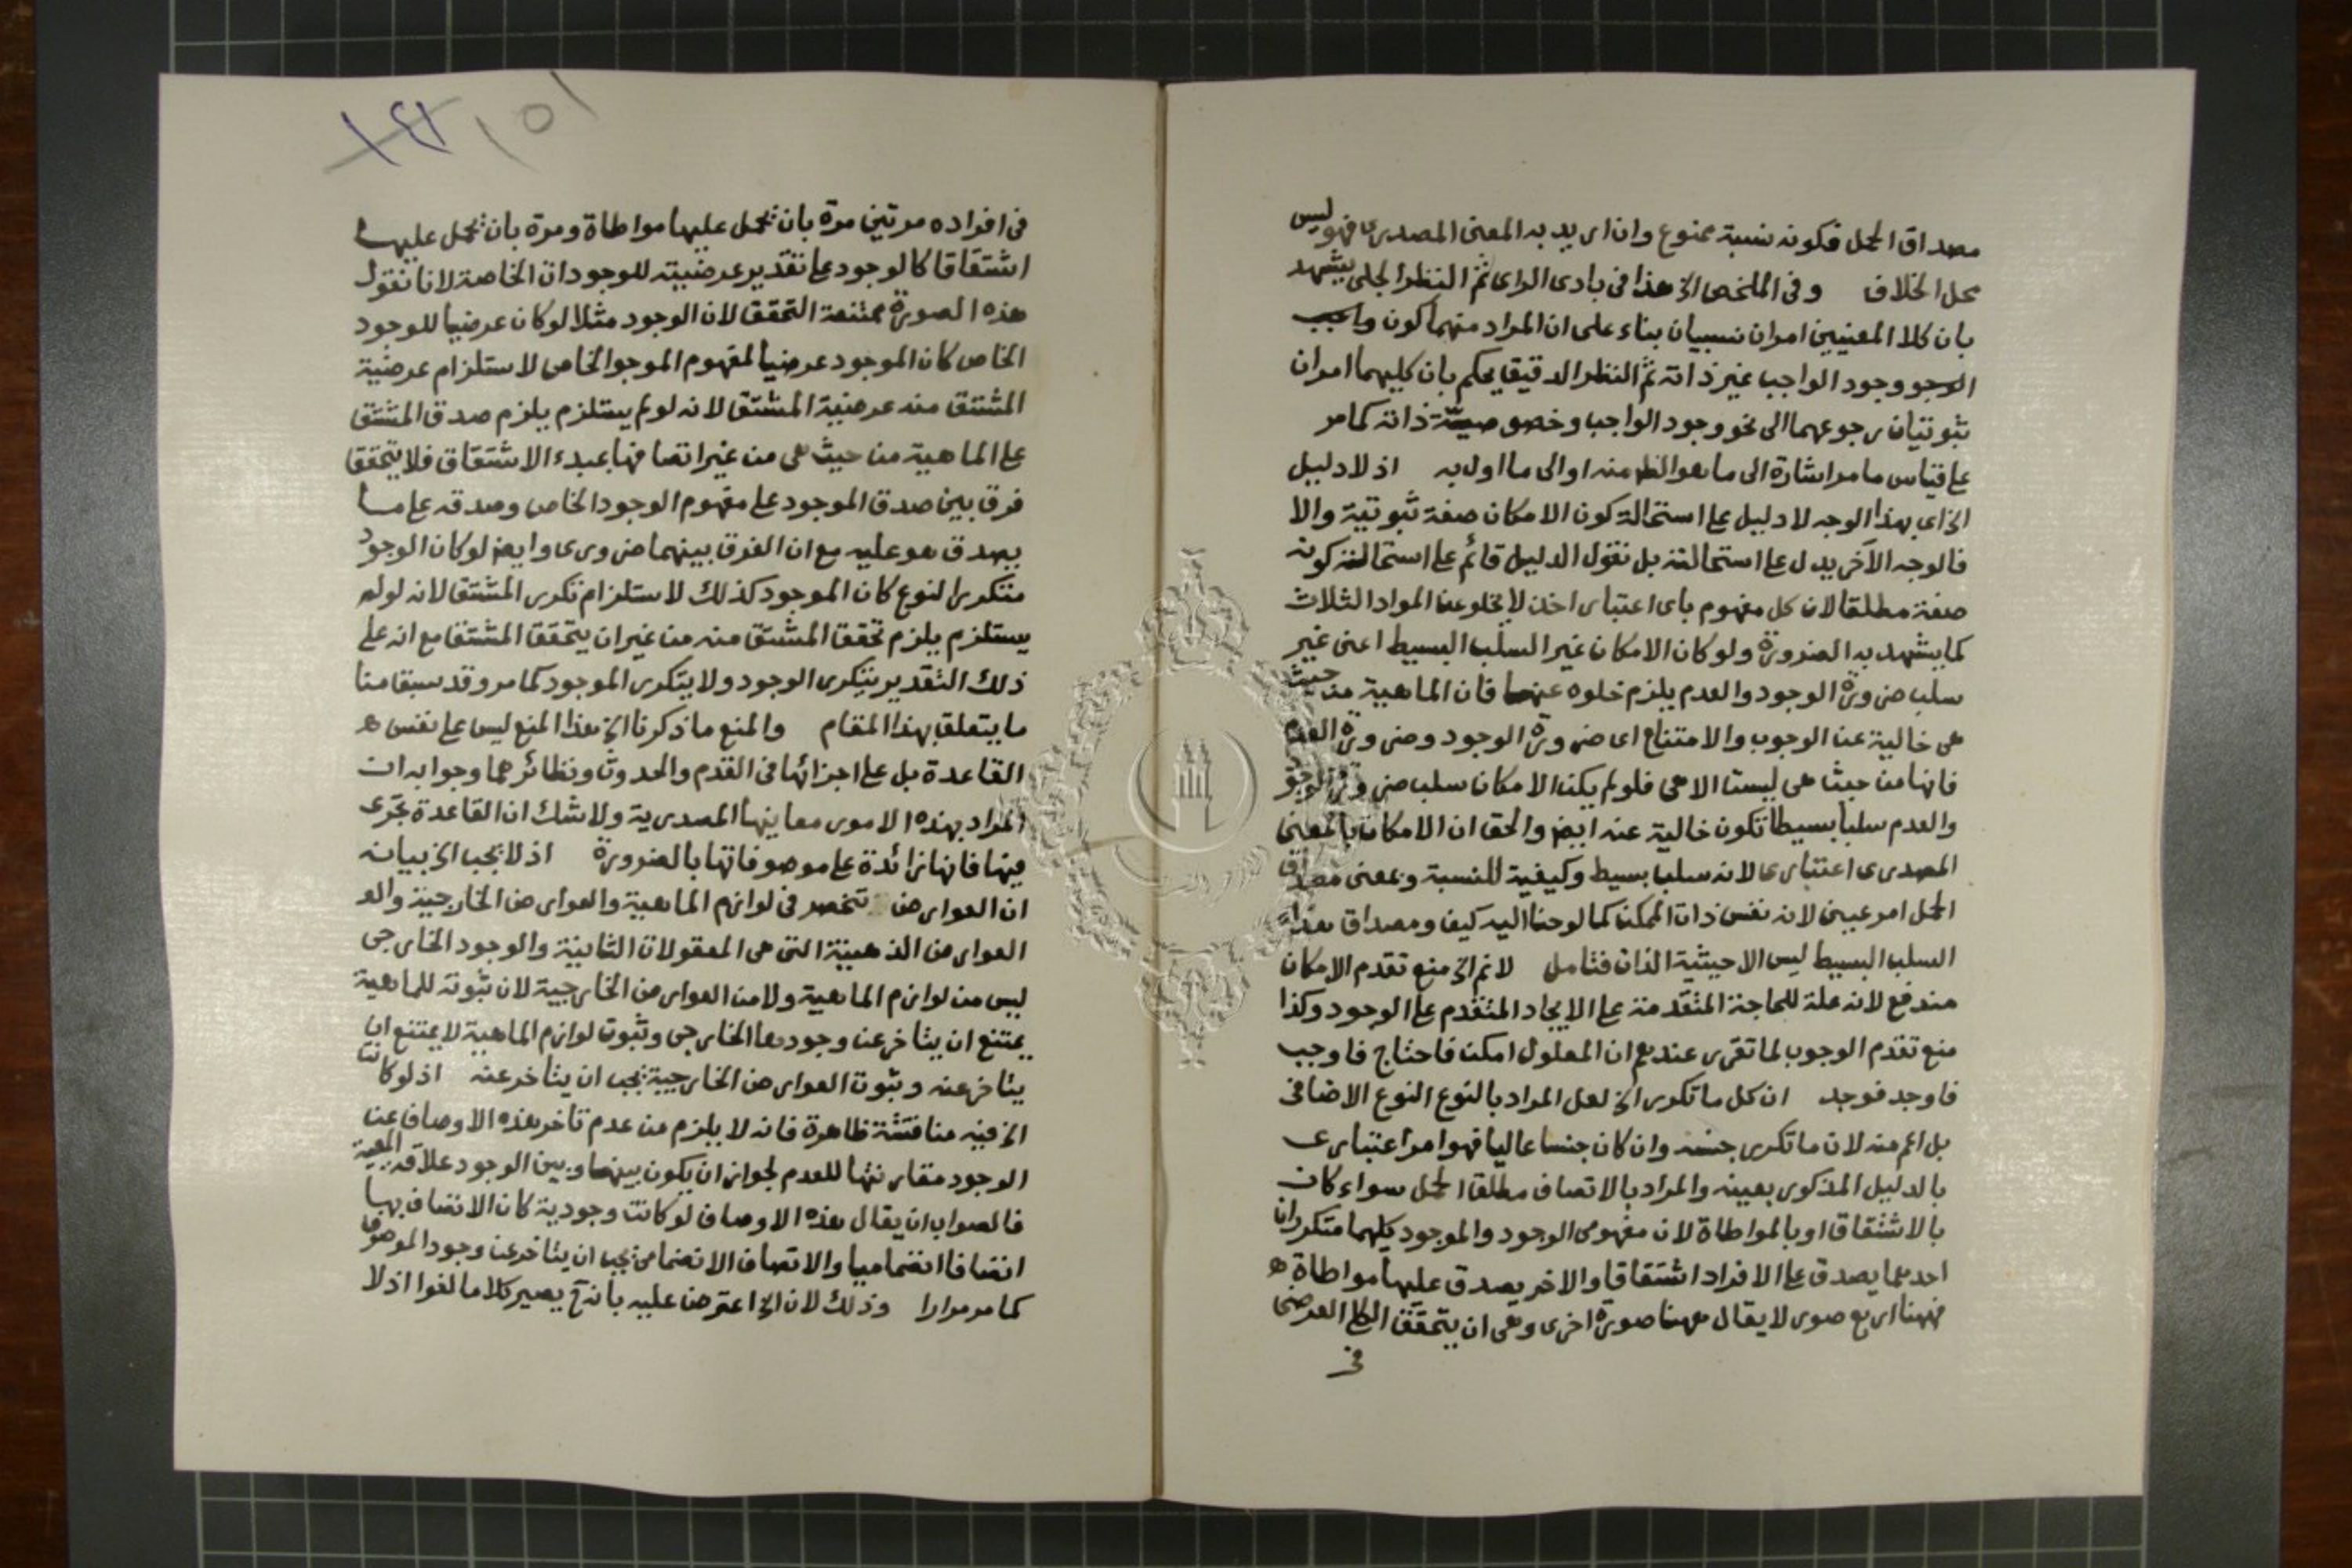 مصداق الحمل فكونه نسبة ممنوع وان اريد به المعنى المصدرى فهو ليس
محل الخلاف وفى الملخص الخ هذا فى بادى الراى ثم النظر الجلى يشهد
بان كلا المعنيين امران نسبيان بناء على ان المراد منهما كون واجب
الوجو وجود الواجب غير ذاته ثم النظر الدقيق يحكم بان كليهما امران
ثبوتيان رجوعهما الى نحو وجود الواجب وخصوصيّة ذاته كما مر
على قياس ما مر اشارة الى ما هو الظ منه او الى ما اول به اذ لا دليل
الخ اى بهذا الوجه لا دليل على استحالة كون الامكان صفة ثبوتية والا
فالوجه الآخر يدل على استحالته بل نقول الدليل قائم على استحالة كونه
صفة مطلقا لان كل مفهوم باى اعتبار اخذ لا يخلو عن المواد الثلاث
كما يشهد به الضرورة ولو كان الامكان غير السلب البسيط اعنى غير
سلب ضرورة الوجود والعدم يلزم خلوه عنهما فان الماهية من حيث
هى خالية عن الوجوب والامتناع اى ضرورة الوجود وضرورة العدم
فانها من حيث هى ليست الا هى فلو لم يكن الامكان سلب ضرورة الوجو
والعدم سلبا بسيطا تكون خالية عنه ايض والحق ان الامكان بالمعنى
المصدرى اعتبارى لانه سلب بسيط وكيفية للنسبة وبمعنى مصداق
الحمل امر عينى لانه نفس ذات الممكن كما لوحنا اليه كيف ومصداق هذا
السلب البسيط ليس الا حيثية الذات فتامل لا نم الخ منع تقدم الامكان
مندفع لانه علة للحاجة المتقدمة على الايجاد المتقدم على الوجود وكذا
منع تقدم الوجوب لما تقرر عندهم ان المعلول امكن فاحتاج فاوجب
فاوجد فوجد ان كل ما تكرر الخ لعل المراد بالنوع النوع الاضافى
بل اعم منه لان ما تكرر جنسه وان كان جنسا عاليا فهو امر اعتبارى
بالدليل المذكور بعينه والمراد بالاتصاف مطلق الحمل سواء كان
بالاشتقاق او بالمواطاة لان مفهومى الوجود والموجود كليهما متكرران
احدهما يصدق على الافراد اشتقاقا والاخر يصدق عليها مواطاة
فههنا اربع صور لا يقال ههنا صورة اخرى وهى ان يتحقق الكلى العرضى
فى
١٥١
فى افراده مرتين مرة بان تحمل عليها مواطاة ومرة بان تحمل عليها
اشتقاقا كالوجود على تقدير عرضيته للوجودات الخاصة لانا نقول
هذه الصورة ممتنعة التحقق لان الوجود مثلا لو كان عرضيا للوجود
الخاص كان الموجود عرضيا لمفهوم الموجو الخاص لاستلزام عرضية
المشتق منه عرضية المشتق لانه لو لم يستلزم يلزم صدق المشتق
على الماهية من حيث هى من غير اتصافها بمبدء الاشتقاق فلا يتحقق
فرق بين صدق الموجود على مفهوم الوجود الخاص وصدقه على ما
يصدق هو عليه مع ان الفرق بينهما ضرورى وايض لو كان الوجود
متكرر النوع كان الموجود كذلك لاستلزام تكرر المشتق لانه لو لم
يستلزم يلزم تحقق المشتق منه من غير ان يتحقق المشتق مع انه على
ذلك التقدير يتكرر الوجود ولا يتكرر الموجود كما مر وقد سبق منا
ما يتعلق بهذا المقام والمنع ما ذكرنا الخ هذا المنع ليس على نفس
القاعدة بل على اجزائها فى القدم والحدوث ونظائرهما وجوابه ان
المراد بهذه الامور معانيها المصدرية ولا شك ان القاعدة تجرى
فيها فانها زائدة على موصوفاتها بالضرورة اذ لا يجب الخ بيانه
ان العوارض تنحصر فى لوازم الماهية والعوارض الخارجية والعو
العوارض الذهنية التى هى المعقولات الثانية والوجود الخارجى
ليس من لوازم الماهية ولا من العوارض الخارجية لان ثبوته للماهية
يمتنع ان يتاخر عن وجودها الخارجى وثبوت لوازم الماهية لا يمتنع ان
يتاخر عنه وثبوت العوارض الخارجية يجب ان يتاخر عنه اذ لو كانت
الخ فيه مناقشة ظاهرة فانه لا يلزم من عدم تاخر هذه الاوصاف عن
الوجود مقارنتها للعدم لجواز ان يكون بينها وبين الوجود علاقة المعية
فالصواب ان يقال هذه الاوصاف لو كانت وجودية كان الاتصاف بها
اتصافا انضماميا والاتصاف الانضمامى يجب ان يتاخر عن وجود الموصوف
كما مر مرارا وذلك لان الخ اعترض عليه بانه ح يصير كلاما لغوا اذ لا